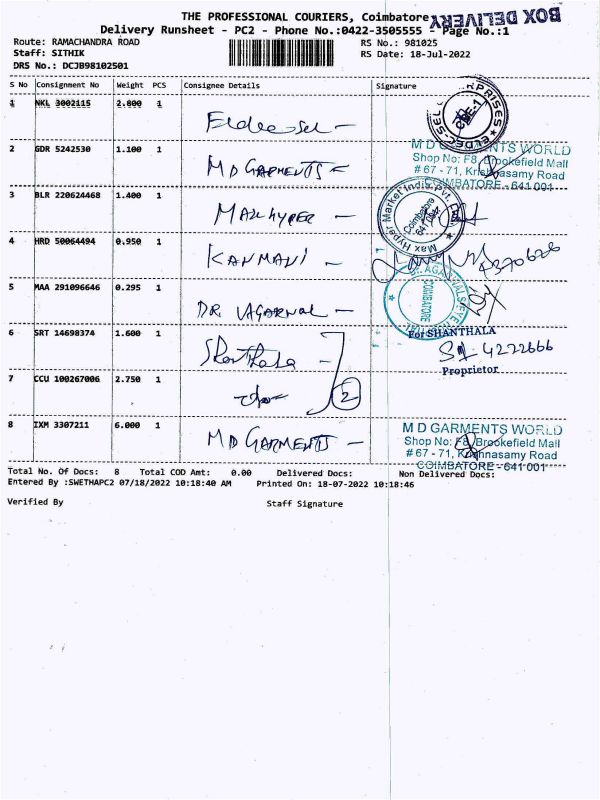 THE PROFESSIONAL COURIERS, Coimbatore
BOX DELIVERY
Delivery Runsheet - PC2 - Phone No.:0422-3505555 - Page No.:1
Route: RAMACHANDRA ROAD RS No.: 981025
Staff: SITHIK RS Date: 18-Jul-2022
DRS No.: DCJB98102501
S No Consignment No Weight PCS Consignee Details Signature
1 NKL 3002115 2.800 1
2 GDR 5242530 1.100 1 M D GARMENTS
M D GARMENTS WORLD
Shop No: F8, Brookefield Mall
# 67 - 71, Krishnasamy Road
COIMBATORE - 641 001
3 BLR 220624468 1.400 1 MAX HYPER
Max Hyper Market India Pvt. Ltd.
Coimbatore
4 HRD 50064494 0.950 1 KANMANI
5 MAA 291096646 0.295 1 DR. AGARWAL
COIMBATORE
6 SRT 14698374 1.600 1 Shanthala
For SHANTHALA
4222666
Proprietor
7 CCU 100267006 2.750 1 2
8 IXM 3307211 6.000 1 M D GARMENTS
M D GARMENTS WORLD
Shop No: F8, Brookefield Mall
# 67 - 71, Krishnasamy Road
COIMBATORE - 641 001
Total No. Of Docs: 8 Total COD Amt: 0.00 Delivered Docs: Non Delivered Docs:
Entered By :SWETHAPC2 07/18/2022 10:18:40 AM Printed On: 18-07-2022 10:18:46
Verified By Staff Signature